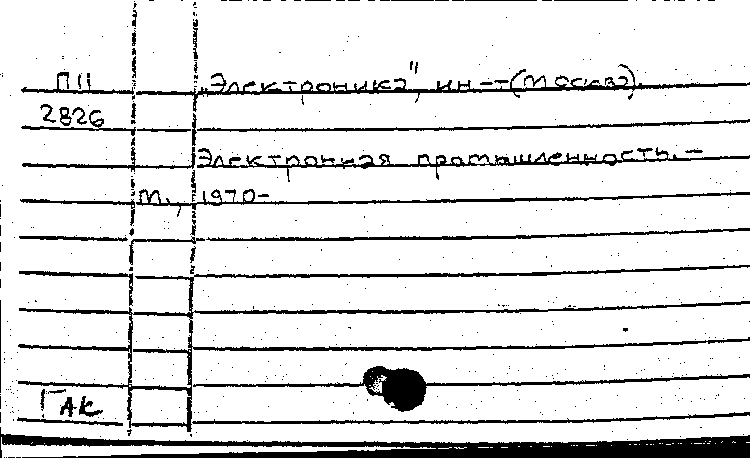 П11 „Электроника", ин-т (Москва).
2826
Электронная промышленность. -
М., 1970-
ГАК